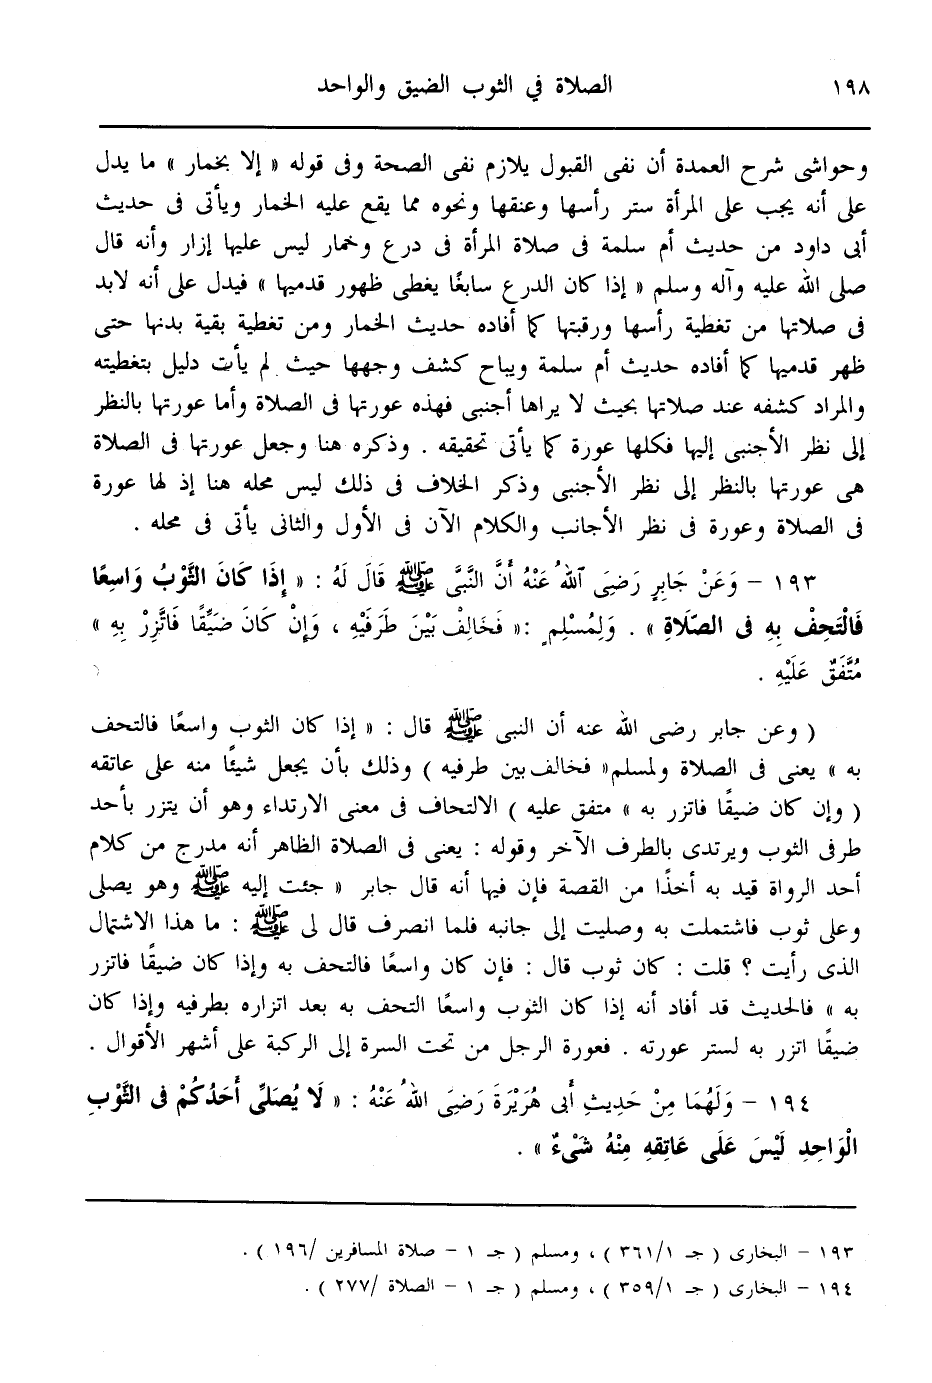 ١٩٨ الصلاة في الثوب الضيق والواحد
وحواشى شرح العمدة أن نفى القبول يلازم نفى الصحة وفى قوله « إلا بخمار » ما يدل
على أنه يجب على المرأة ستر رأسها وعنقها ونحوه مما يقع عليه الخمار ويأتى فى حديث
أبى داود من حديث أم سلمة فى صلاة المرأة فى درع وخمار ليس عليها إزار وأنه قال
صلى الله عليه وآله وسلم « إذا كان الدرع سابغًا يغطى ظهور قدميها » فيدل على أنه لابد
فى صلاتها من تغطية رأسها ورقبتها كما أفاده حديث الخمار ومن تغطية بقية بدنها حتى
ظهر قدميها كما أفاده حديث أم سلمة ويباح كشف وجهها حيث لم يأت دليل بتغطيته
والمراد كشفه عند صلاتها بحيث لا يراها أجنبى فهذه عورتها فى الصلاة وأما عورتها بالنظر
إلى نظر الأجنبى إليها فكلها عورة كما يأتى تحقيقه . وذكره هنا وجعل عورتها فى الصلاة
هى عورتها بالنظر إلى نظر الأجنبى وذكر الخلاف فى ذلك ليس محله هنا إذ لها عورة
فى الصلاة وعورة فى نظر الأجانب والكلام الآن فى الأول والثانى يأتى فى محله .
١٩٣ – وَعَنْ جَابِرٍ رَضِىَ اللهُ عَنْهُ أَنَّ النَّبِىَّ ﷺ قَالَ لَهُ : « إِذَا كَانَ الثَّوْبُ وَاسِعًا
فَالْتَحِفْ بِهِ فى الصَّلَاةِ » . وَلِمُسْلِمٍ :« فَخَالِفْ بَيْنَ طَرَفَيْهِ ، وَإِنْ كَانَ ضَيِّقًا فَاتَّزِرْ بِهِ »
مُتَّفَقٌ عَلَيْهِ .
( وعن جابر رضى الله عنه أن النبى ﷺ قال : « إذا كان الثوب واسعًا فالتحف
به » يعنى فى الصلاة ولمسلم« فخالف بين طرفيه ) وذلك بأن يجعل شيئًا منه على عاتقه
( وإن كان ضيقًا فاتزر به » متفق عليه ) الالتحاف فى معنى الارتداء وهو أن يتزر بأحد
طرفى الثوب ويرتدى بالطرف الآخر وقوله : يعنى فى الصلاة الظاهر أنه مدرج من كلام
أحد الرواة قيد به أخذًا من القصة فإن فيها أنه قال جابر « جئت إليه ﷺ وهو يصلى
وعلى ثوب فاشتملت به وصليت إلى جانبه فلما انصرف قال لى ﷺ : ما هذا الاشتمال
الذى رأيت ؟ قلت : كان ثوب قال : فإن كان واسعًا فالتحف به وإذا كان ضيقًا فاتزر
به » فالحديث قد أفاد أنه إذا كان الثوب واسعًا التحف به بعد اتزاره بطرفيه وإذا كان
ضيقًا اتزر به لستر عورته . فعورة الرجل من تحت السرة إلى الركبة على أشهر الأقوال .
١٩٤ – وَلَهُمَا مِنْ حَدِيثِ أَبى هُرَيْرَةَ رَضِىَ اللهُ عَنْهُ : « لَا يُصَلِّى أَحَدُكُمْ فى الثَّوْبِ
الْوَاحِدِ لَيْسَ عَلَى عَاتِقِهِ مِنْهُ شَىْءٌ » .
١٩٣ – البخارى ( جـ ٣٦١/١ ) ، ومسلم ( جـ ١ – صلاة المسافرين /١٩٦ ) .
١٩٤ – البخارى ( جـ ٣٥٩/١ ) ، ومسلم ( جـ ١ – الصلاة /٢٧٧ ) .